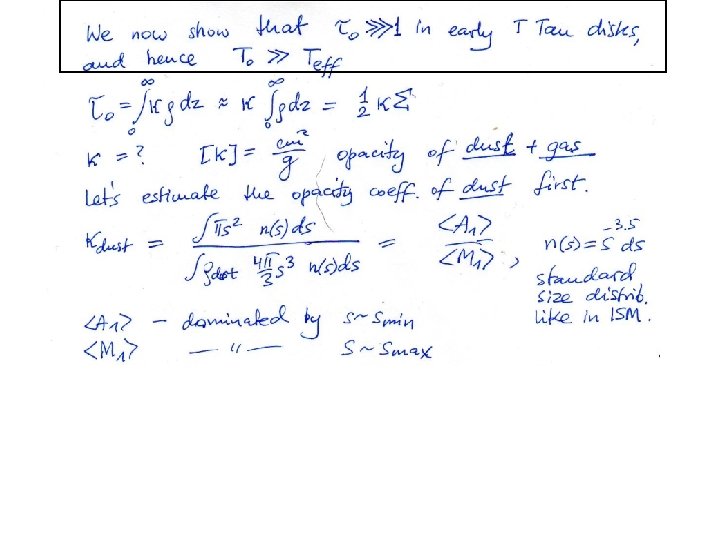 We now show that τ₀ ⋙ 1 in early T Tau disks,
and hence T₀ ≫ Teff
τ₀ = ∫₀^∞ κρdz ≈ κ ∫₀^∞ ρdz = ½ κΣ
κ = ? [κ] = cm²/g opacity of dust + gas
Let's estimate the opacity coeff. of dust first.
κdust = ∫πs² n(s)ds / ∫ρdst 4π/3 s³ n(s)ds = <A₁>/<M₁>, n(s) = s^-3.5 ds
standard
size distrib.
like in ISM.
<A₁> – dominated by s~smin
<M₁> — " — s~smax